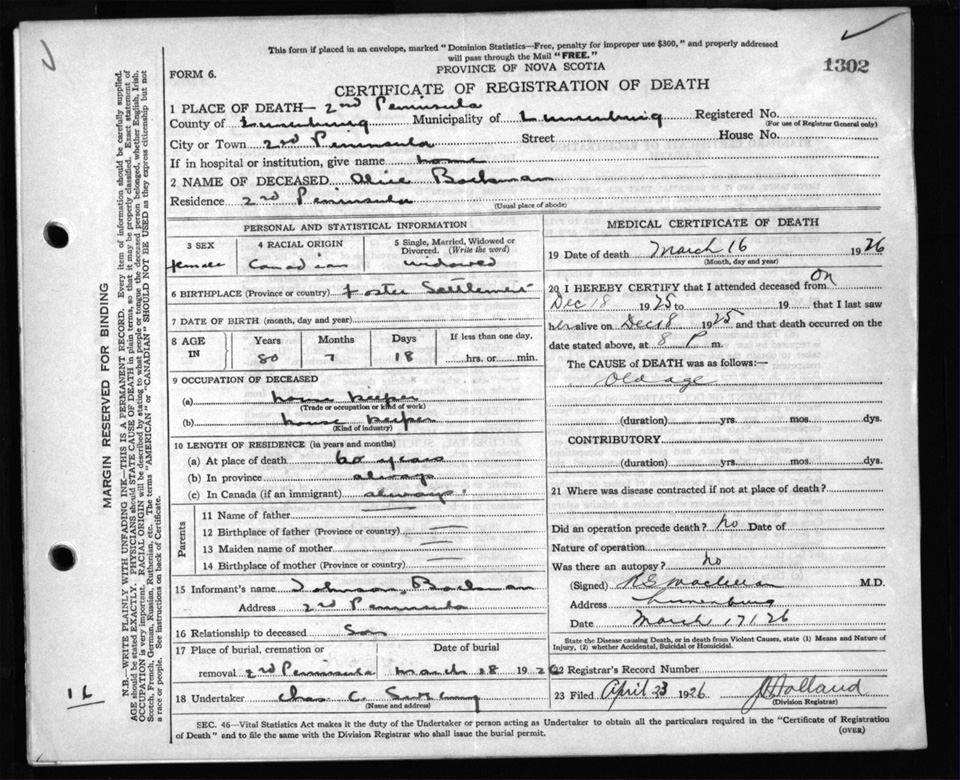 This form if placed in an envelope, marked "Dominion Statistics—Free, penalty for improper use $300," and properly addressed
will pass through the Mail "FREE."
PROVINCE OF NOVA SCOTIA
1302
FORM 6.
CERTIFICATE OF REGISTRATION OF DEATH
1 PLACE OF DEATH— 2nd Peninsula
County of Lunenburg Municipality of Lunenburg Registered No.
(For use of Registrar General only)
City or Town 2nd Peninsula Street House No.
If in hospital or institution, give name home
2 NAME OF DECEASED Alice Backman
Residence 2nd Peninsula
(Usual place of abode)
PERSONAL AND STATISTICAL INFORMATION
3 SEX 4 RACIAL ORIGIN 5 Single, Married, Widowed or Divorced. (Write the word)
female Canadian widowed
6 BIRTHPLACE (Province or country) Foster Settlement
7 DATE OF BIRTH (month, day and year)
8 AGE IN Years Months Days If less than one day,
80 7 18 hrs. or min.
9 OCCUPATION OF DECEASED
(a) house keeper
(Trade or occupation or kind of work)
(b) house keeper
(Kind of industry)
10 LENGTH OF RESIDENCE (in years and months)
(a) At place of death 60 years
(b) In province always
(c) In Canada (if an immigrant) always
Parents
11 Name of father
12 Birthplace of father (Province or country)
13 Maiden name of mother
14 Birthplace of mother (Province or country)
15 Informant's name Johnson Backman
Address 2nd Peninsula
16 Relationship to deceased Son
17 Place of burial, cremation or Date of burial
removal 2nd Peninsula March 18 1926
18 Undertaker Chas C.
(Name and address)
MEDICAL CERTIFICATE OF DEATH
19 Date of death March 16 1926
(Month, day and year)
20 I HEREBY CERTIFY that I attended deceased from On
Dec 18 1925 to 19 that I last saw
her alive on Dec 18 1925 and that death occurred on the
date stated above, at 8 P m.
The CAUSE of DEATH was as follows:—
Old age
(duration) yrs. mos. dys.
CONTRIBUTORY
(duration) yrs. mos. dys.
21 Where was disease contracted if not at place of death?
Did an operation precede death? no Date of
Nature of operation
Was there an autopsy? no
(Signed) M.D.
Address Lunenburg
Date March 17/26
State the Disease causing Death, or in death from Violent Causes, state (1) Means and Nature of
Injury, (2) whether Accidental, Suicidal or Homicidal.
22 Registrar's Record Number
23 Filed April 23 1926 Holland
(Division Registrar)
SEC. 46—Vital Statistics Act makes it the duty of the Undertaker or person acting as Undertaker to obtain all the particulars required in the "Certificate of Registration
of Death" and to file the same with the Division Registrar who shall issue the burial permit.
(OVER)
MARGIN RESERVED FOR BINDING
N.B.—WRITE PLAINLY WITH UNFADING INK—THIS IS A PERMANENT RECORD. Every item of information should be carefully supplied.
AGE should be stated EXACTLY. PHYSICIANS should STATE CAUSE OF DEATH in plain terms, so that it may be properly classified. Exact statement of
OCCUPATION is very important. RACIAL ORIGIN will be described by stating to what people or tongue the deceased person belonged, whether English, Irish,
Scotch, French, German, Russian, Ruthenian, etc. The terms "AMERICAN" or "CANADIAN" SHOULD NOT BE USED as they express citizenship but not
a race or people. See instructions on back of Certificate.
16